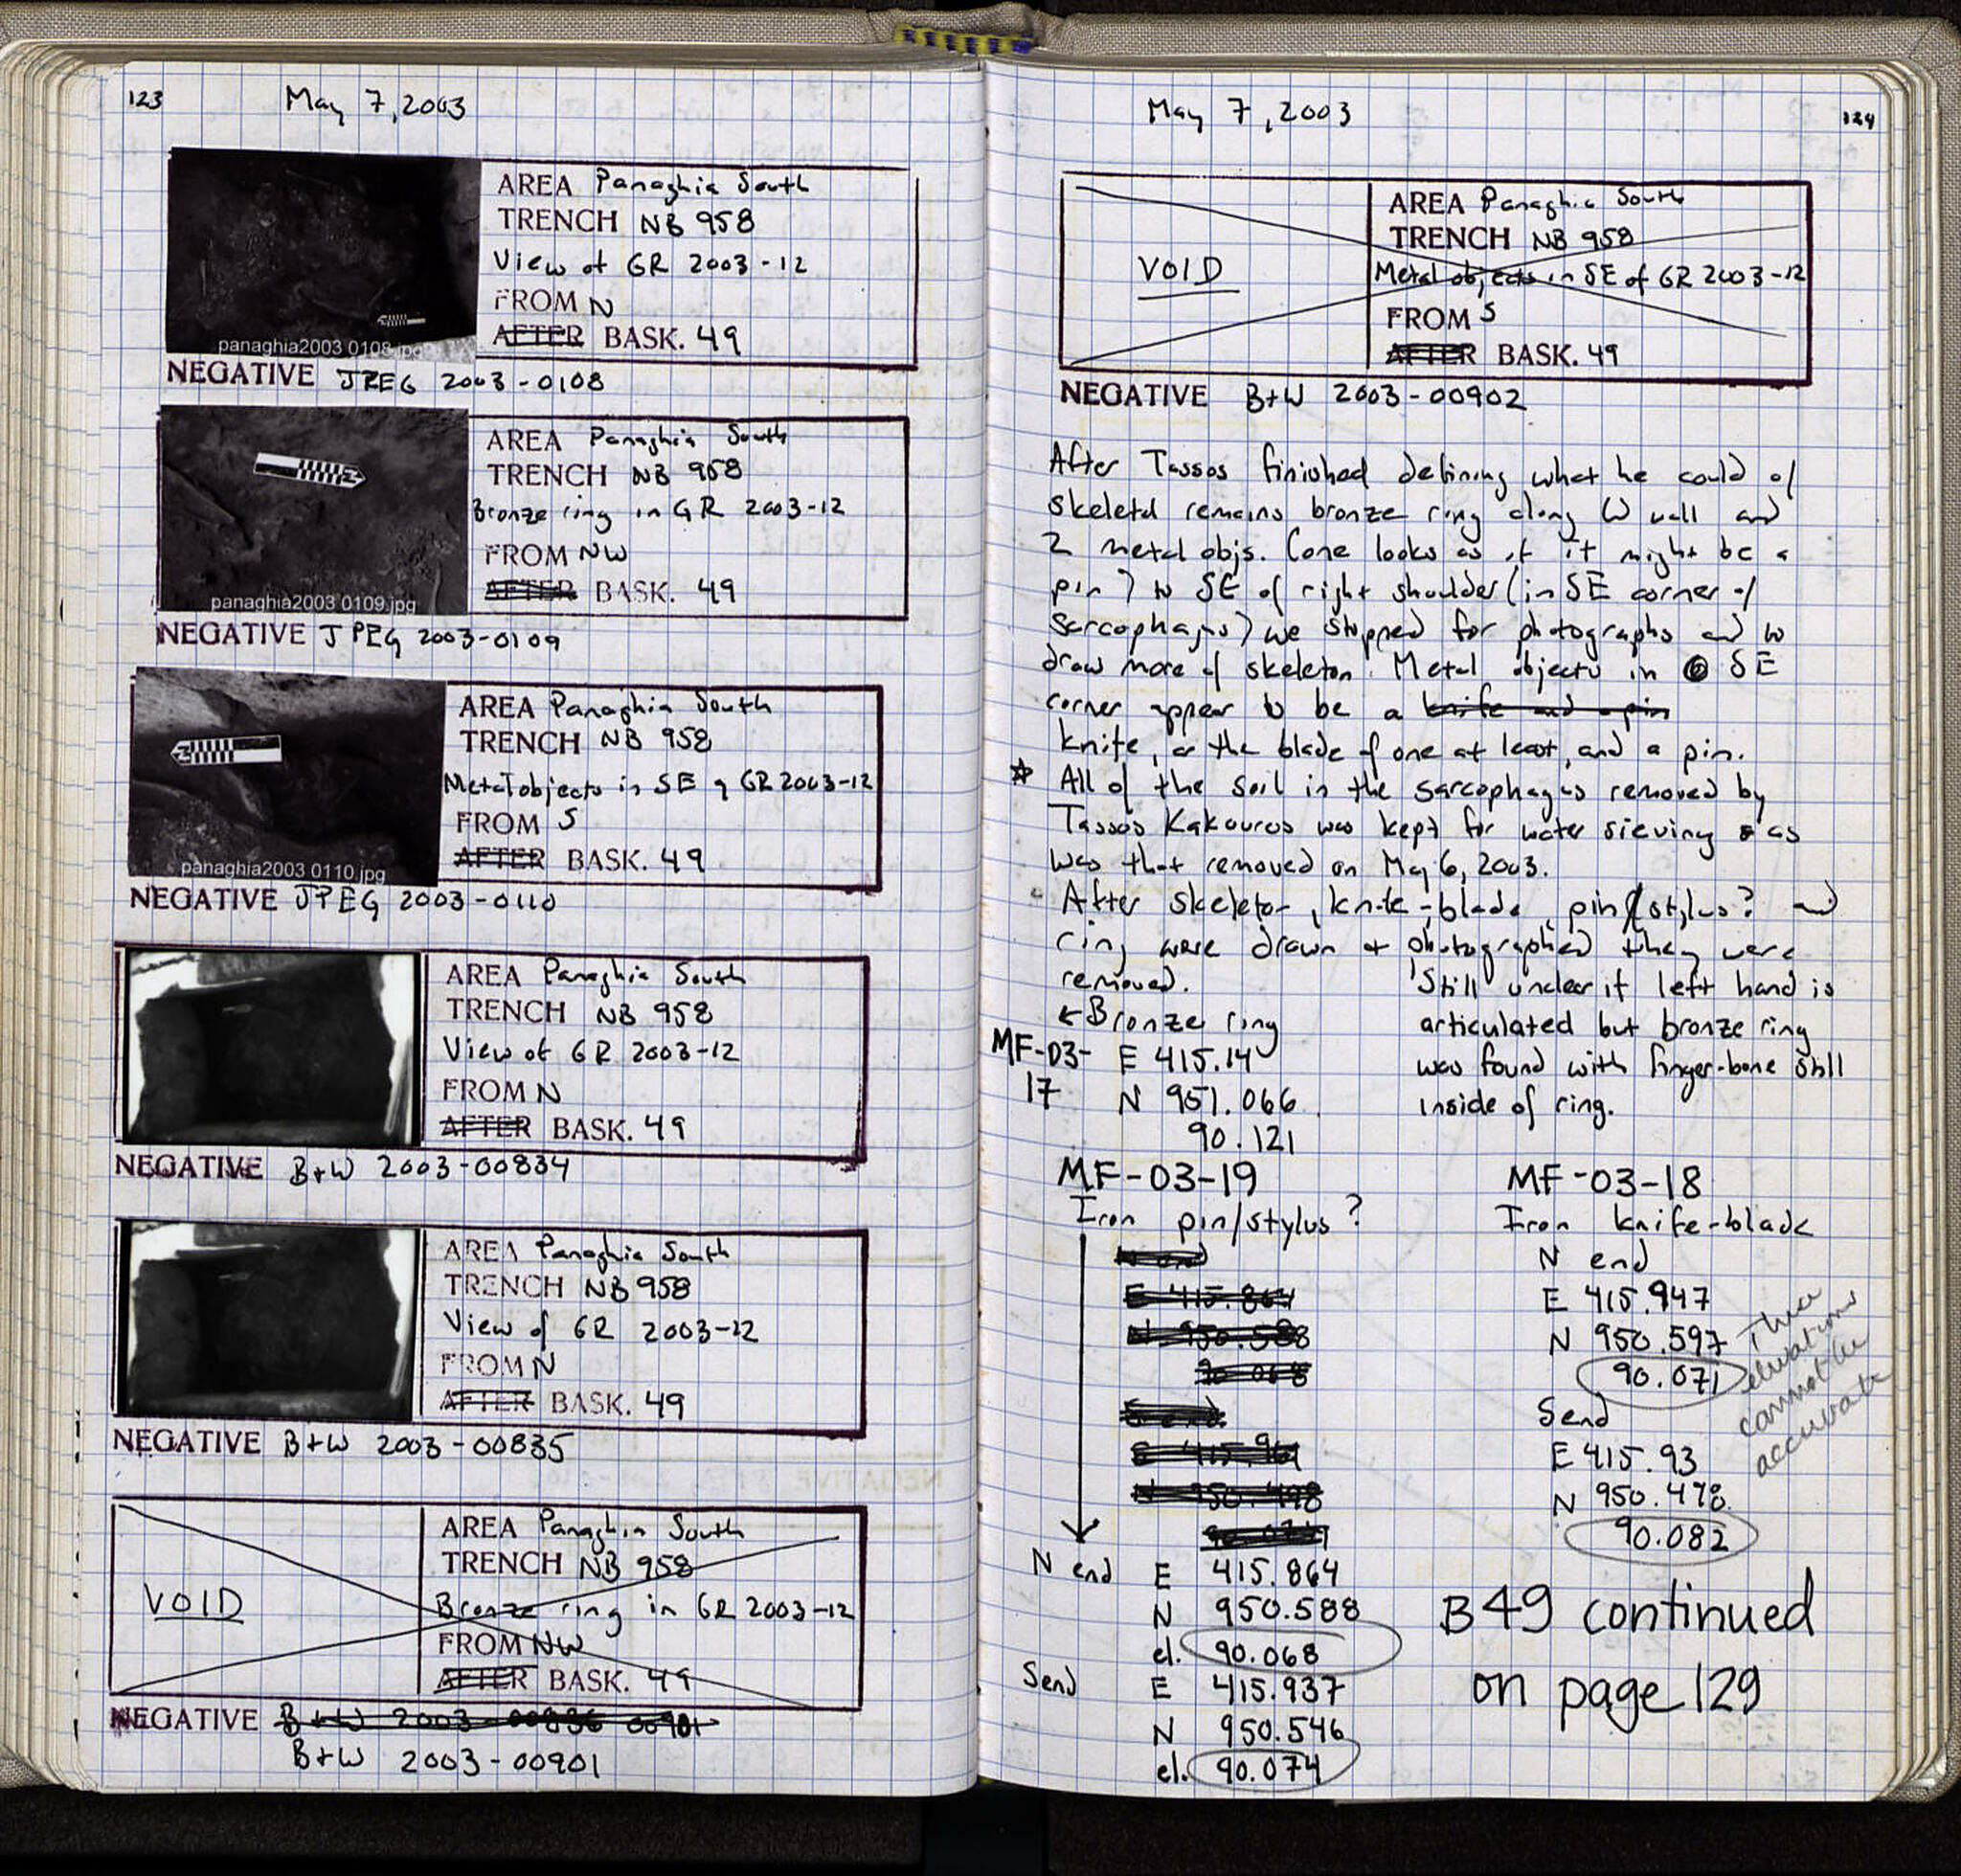 123 May 7, 2003
AREA Panaghia South
TRENCH NB 958
View of GR 2003-12
FROM N
AFTER BASK. 49
panaghia2003 0108.jpg
NEGATIVE JPEG 2003-0108
AREA Panaghia South
TRENCH NB 958
Bronze ring in GR 2003-12
FROM NW
AFTER BASK. 49
panaghia2003 0109.jpg
NEGATIVE JPEG 2003-0109
AREA Panaghia South
TRENCH NB 958
Metal objects in SE of GR 2003-12
FROM S
AFTER BASK. 49
panaghia2003 0110.jpg
NEGATIVE JPEG 2003-0110
AREA Panaghia South
TRENCH NB 958
View of GR 2003-12
FROM N
AFTER BASK. 49
NEGATIVE B+W 2003-00834
AREA Panaghia South
TRENCH NB 958
View of GR 2003-12
FROM N
AFTER BASK. 49
NEGATIVE B+W 2003-00835
VOID
AREA Panaghia South
TRENCH NB 958
Bronze ring in GR 2003-12
FROM NW
AFTER BASK. 49
NEGATIVE B+W 2003-00836 00901
B+W 2003-00901
May 7, 2003 124
VOID
AREA Panaghia South
TRENCH NB 958
Metal objects in SE of GR 2003-12
FROM S
AFTER BASK. 49
NEGATIVE B+W 2003-00902
After Tassos finished defining what he could of
skeletal remains bronze ring along W wall and
2 metal objs. (one looks as if it might be a
pin) to SE of right shoulder (in SE corner of
sarcophagus) we stopped for photographs and to
draw more of skeleton. Metal objects in SE
corner appear to be a knife and a pin
knife, or the blade of one at least, and a pin.
* All of the soil in the sarcophagus removed by
Tassos Kakouros was kept for water sieving as
was that removed on May 6, 2003.
- After skeleton, knife-blade, pin/stylus? and
ring were drawn + photographed they were
removed.
Still unclear if left hand is
articulated but bronze ring
was found with finger-bone still
inside of ring.
← Bronze ring
MF-03-17
E 415.14
N 951.066
90.121
MF-03-19
Iron pin/stylus?
N end
E 415.864
N 950.588
90.068
S end
N end E 415.864
N 950.588
el. 90.068
S end E 415.937
N 950.546
el. 90.074
MF-03-18
Iron knife-blade
N end
E 415.947
N 950.597
90.071
S end
E 415.93
N 950.478
90.082
These
elevations
cannot be
accurate
B49 continued
on page 129